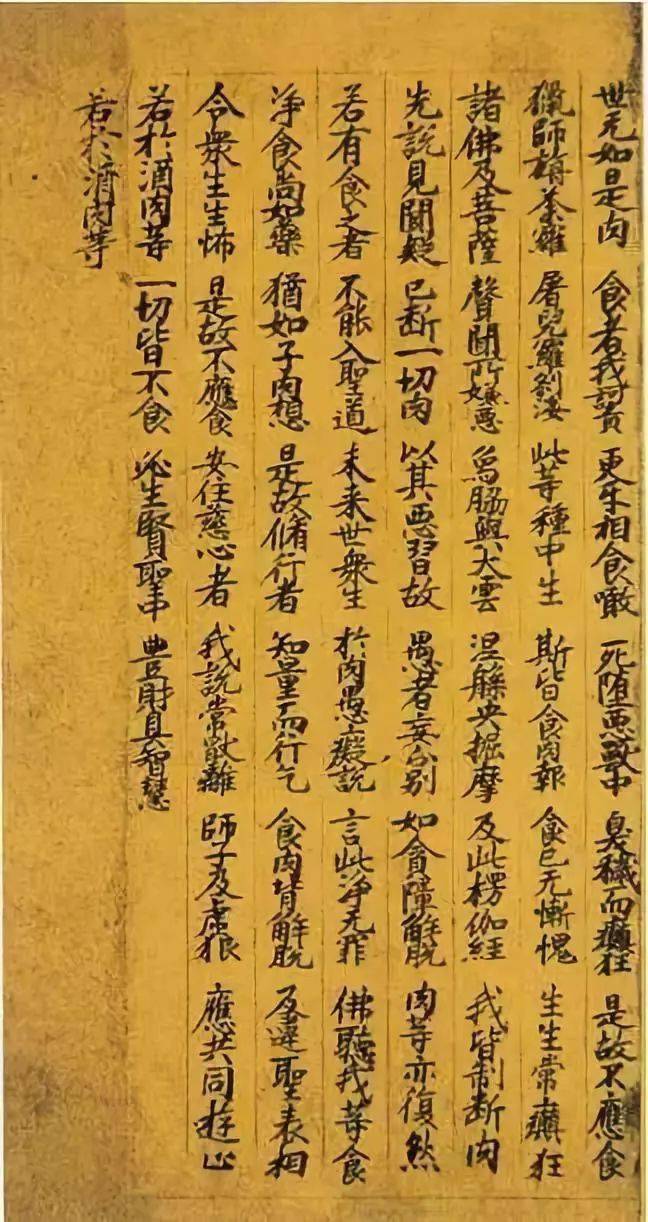 世无如是肉 食者我訶責 更互相食噉 死墮惡獸中 臭穢而癲狂 是故不應食
獵師栴荼羅 屠兒羅剎娑 此等種中生 斯皆食肉報 食已无慚愧 生生常癲狂
諸佛及菩薩 聲聞所嫌惡 象脇與大雲 涅槃央掘摩 及此楞伽經 我皆制斷肉
先說見聞疑 已斷一切肉 以其惡習故 愚者妄分別 如貪障解脫 肉等亦復然
若有食之者 不能入聖道 未来世衆生 於肉愚癡說 言此淨无罪 佛聽我等食
淨食尚如藥 猶如子肉想 是故脩行者 知量而行乞 食肉背解脫 及違聖表相
令衆生生怖 是故不應食 安住慈心者 我說常猒離 師子及虎狼 應共同遊止
若於酒肉等 一切皆不食 必生賢聖中 豐財具智慧
若於酒肉等